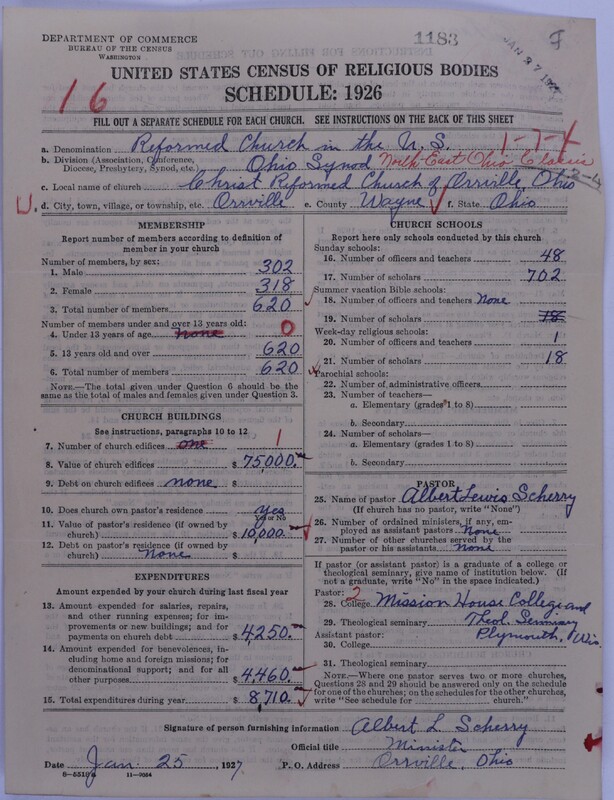 DEPARTMENT OF COMMERCE
BUREAU OF THE CENSUS
WASHINGTON
1183
JAN 27 1927
UNITED STATES CENSUS OF RELIGIOUS BODIES
SCHEDULE: 1926
16
FILL OUT A SEPARATE SCHEDULE FOR EACH CHURCH. SEE INSTRUCTIONS ON THE BACK OF THIS SHEET
a. Denomination Reformed Church in the U. S.
b. Division (Association, Conference,
Diocese, Presbytery, Synod, etc.) Ohio Synod North East Ohio Classis
c. Local name of church Christ Reformed Church of Orrville, Ohio
U. d. City, town, village, or township, etc. Orrville e. County Wayne f. State Ohio
MEMBERSHIP
Report number of members according to definition of
member in your church
Number of members, by sex:
1. Male 302
2. Female 318
3. Total number of members 620
Number of members under and over 13 years old:
4. Under 13 years of age none 0
5. 13 years old and over 620
6. Total number of members 620
NOTE.—The total given under Question 6 should be the
same as the total of males and females given under Question 3.
CHURCH BUILDINGS
See instructions, paragraphs 10 to 12
7. Number of church edifices one 1
8. Value of church edifices $ 75,000.
9. Debt on church edifices none $
10. Does church own pastor's residence Yes
Yes or No
11. Value of pastor's residence (if owned by
church) $ 10,000.
12. Debt on pastor's residence (if owned by
church) None $
EXPENDITURES
Amount expended by your church during last fiscal year
13. Amount expended for salaries, repairs,
and other running expenses; for im-
provements or new buildings; and for
payments on church debt $ 4250.
14. Amount expended for benevolences,
including home and foreign missions; for
denominational support; and for all
other purposes $ 4460.
15. Total expenditures during year $ 8,710.
CHURCH SCHOOLS
Report here only schools conducted by this church
Sunday schools:
16. Number of officers and teachers 48
17. Number of scholars 702
Summer vacation Bible schools:
18. Number of officers and teachers None
19. Number of scholars 18
Week-day religious schools:
20. Number of officers and teachers 1
21. Number of scholars 18
Parochial schools:
22. Number of administrative officers
23. Number of teachers—
a. Elementary (grades 1 to 8)
b. Secondary
24. Number of scholars—
a. Elementary (grades 1 to 8)
b. Secondary
PASTOR
25. Name of pastor Albert Lewis Scherry
(If church has no pastor, write "None")
26. Number of ordained ministers, if any, em-
ployed as assistant pastors None
27. Number of other churches served by the
pastor or his assistants None
If pastor (or assistant pastor) is a graduate of a college or
theological seminary, give name of institution below. (If
not a graduate, write "No" in the space indicated.)
Pastor: 2
28. College Mission House College and
29. Theological seminary Theol. Seminary
Assistant pastor: Plymouth, Wis.
30. College
31. Theological seminary
NOTE.—Where one pastor serves two or more churches,
Questions 28 and 29 should be answered only on the schedule
for one of the churches; on the schedules for the other churches,
write "See schedule for church."
Signature of person furnishing information Albert L. Scherry
Official title Minister
Date Jan. 25, 1927 P. O. Address Orrville, Ohio